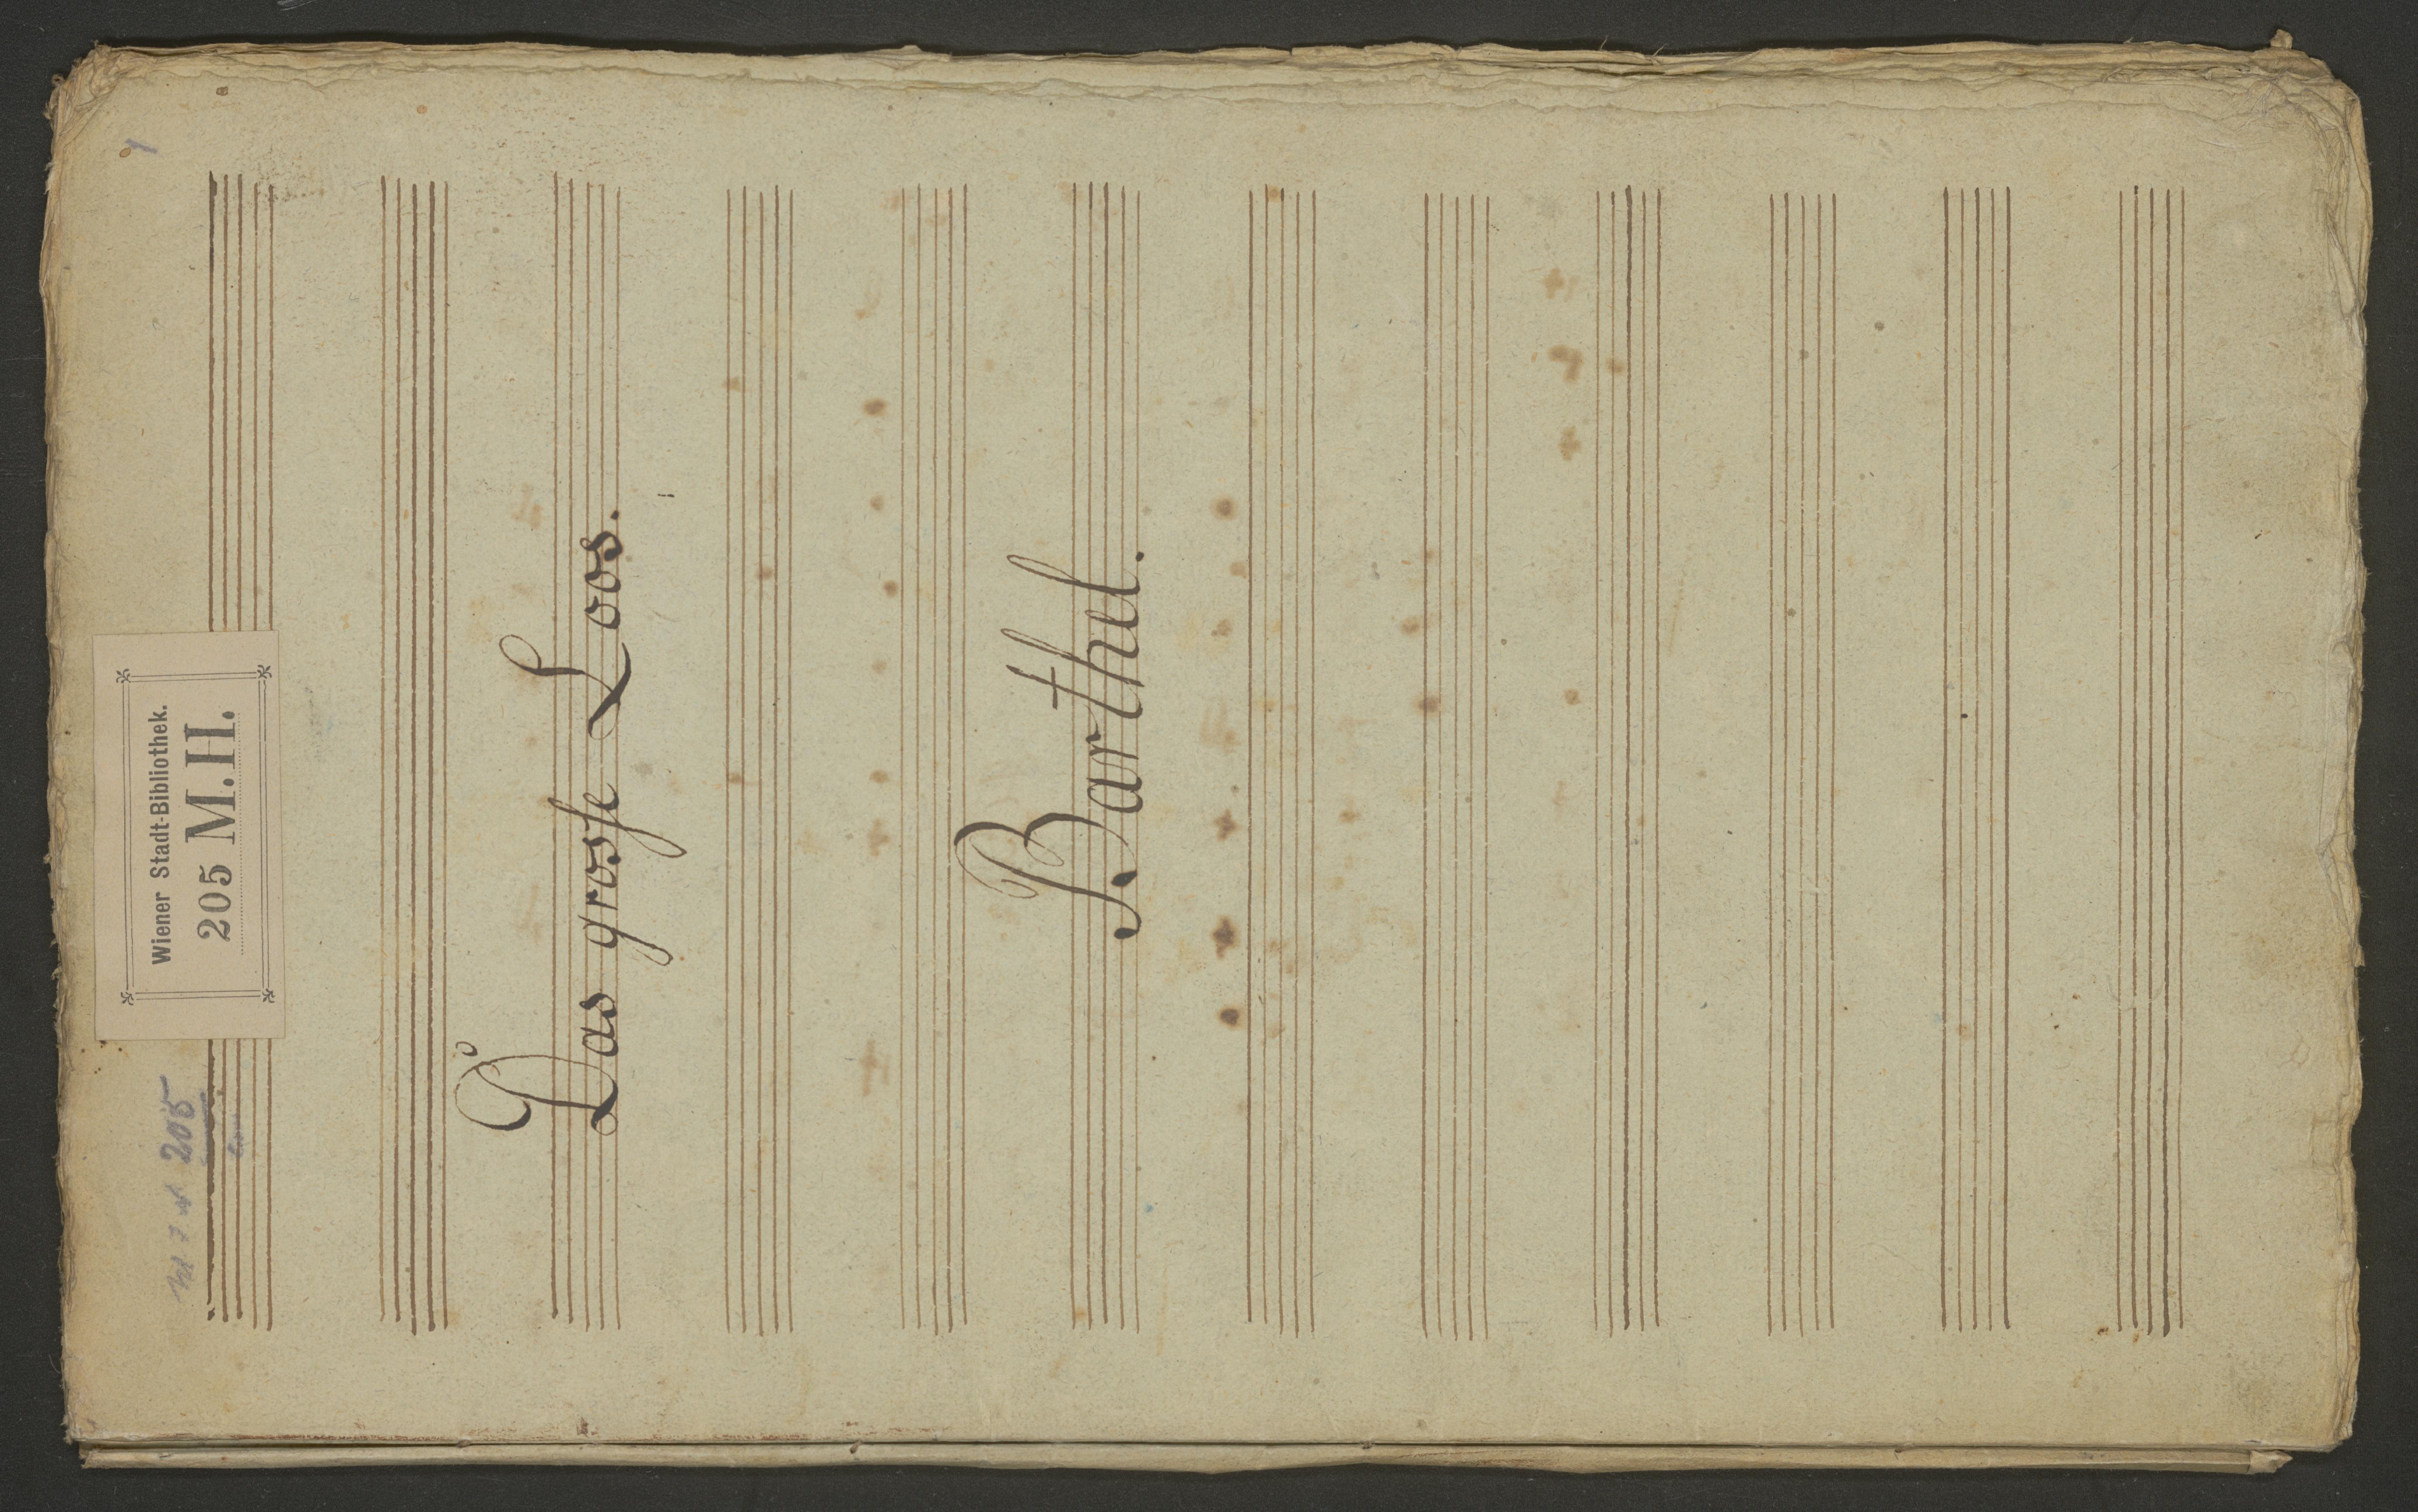 Wiener Stadt-Bibliothek.
205 M.H.
205
Das grosse Loos.
Barthel.
1